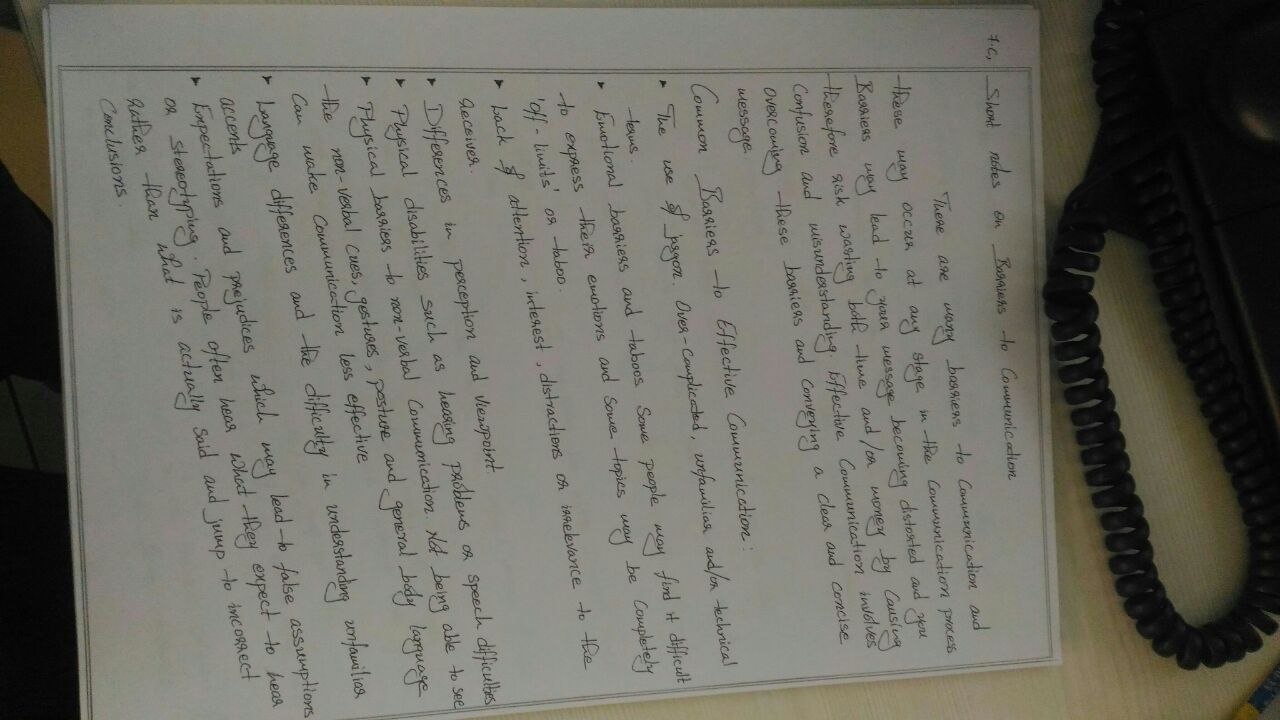 7.c, Short notes on Barriers to Communication
There are many barriers to Communication and
these may occur at any stage in the Communication process
Barriers may lead to your message becoming distorted and you
therefore risk wasting both time and/or money by Causing
Confusion and misunderstanding. Effective Communication involves
overcoming these barriers and conveying a clear and concise
message.
Common Barriers to Effective Communication:
➤ The use of Jargon. Over-Complicated, unfamiliar and/or technical
terms.
➤ Emotional barriers and taboos Some people may find it difficult
to express their emotions and some topics may be Completely
'off-limits' or taboo.
➤ Lack of attention, interest, distractions or irrelevance to the
receiver.
➤ Differences in perception and viewpoint
➤ Physical disabilities such as hearing problems or speech difficulties
➤ Physical barriers to non-verbal Communication. Not being able to see
the non-verbal cues, gestures, posture and general body language
Can make Communication less effective
➤ Language differences and the difficulty in understanding unfamiliar
accents
➤ Expectations and prejudices which may lead to false assumptions
or stereotyping. People often hear what they expect to hear
rather than what is actually said and jump to incorrect
Conclusions.